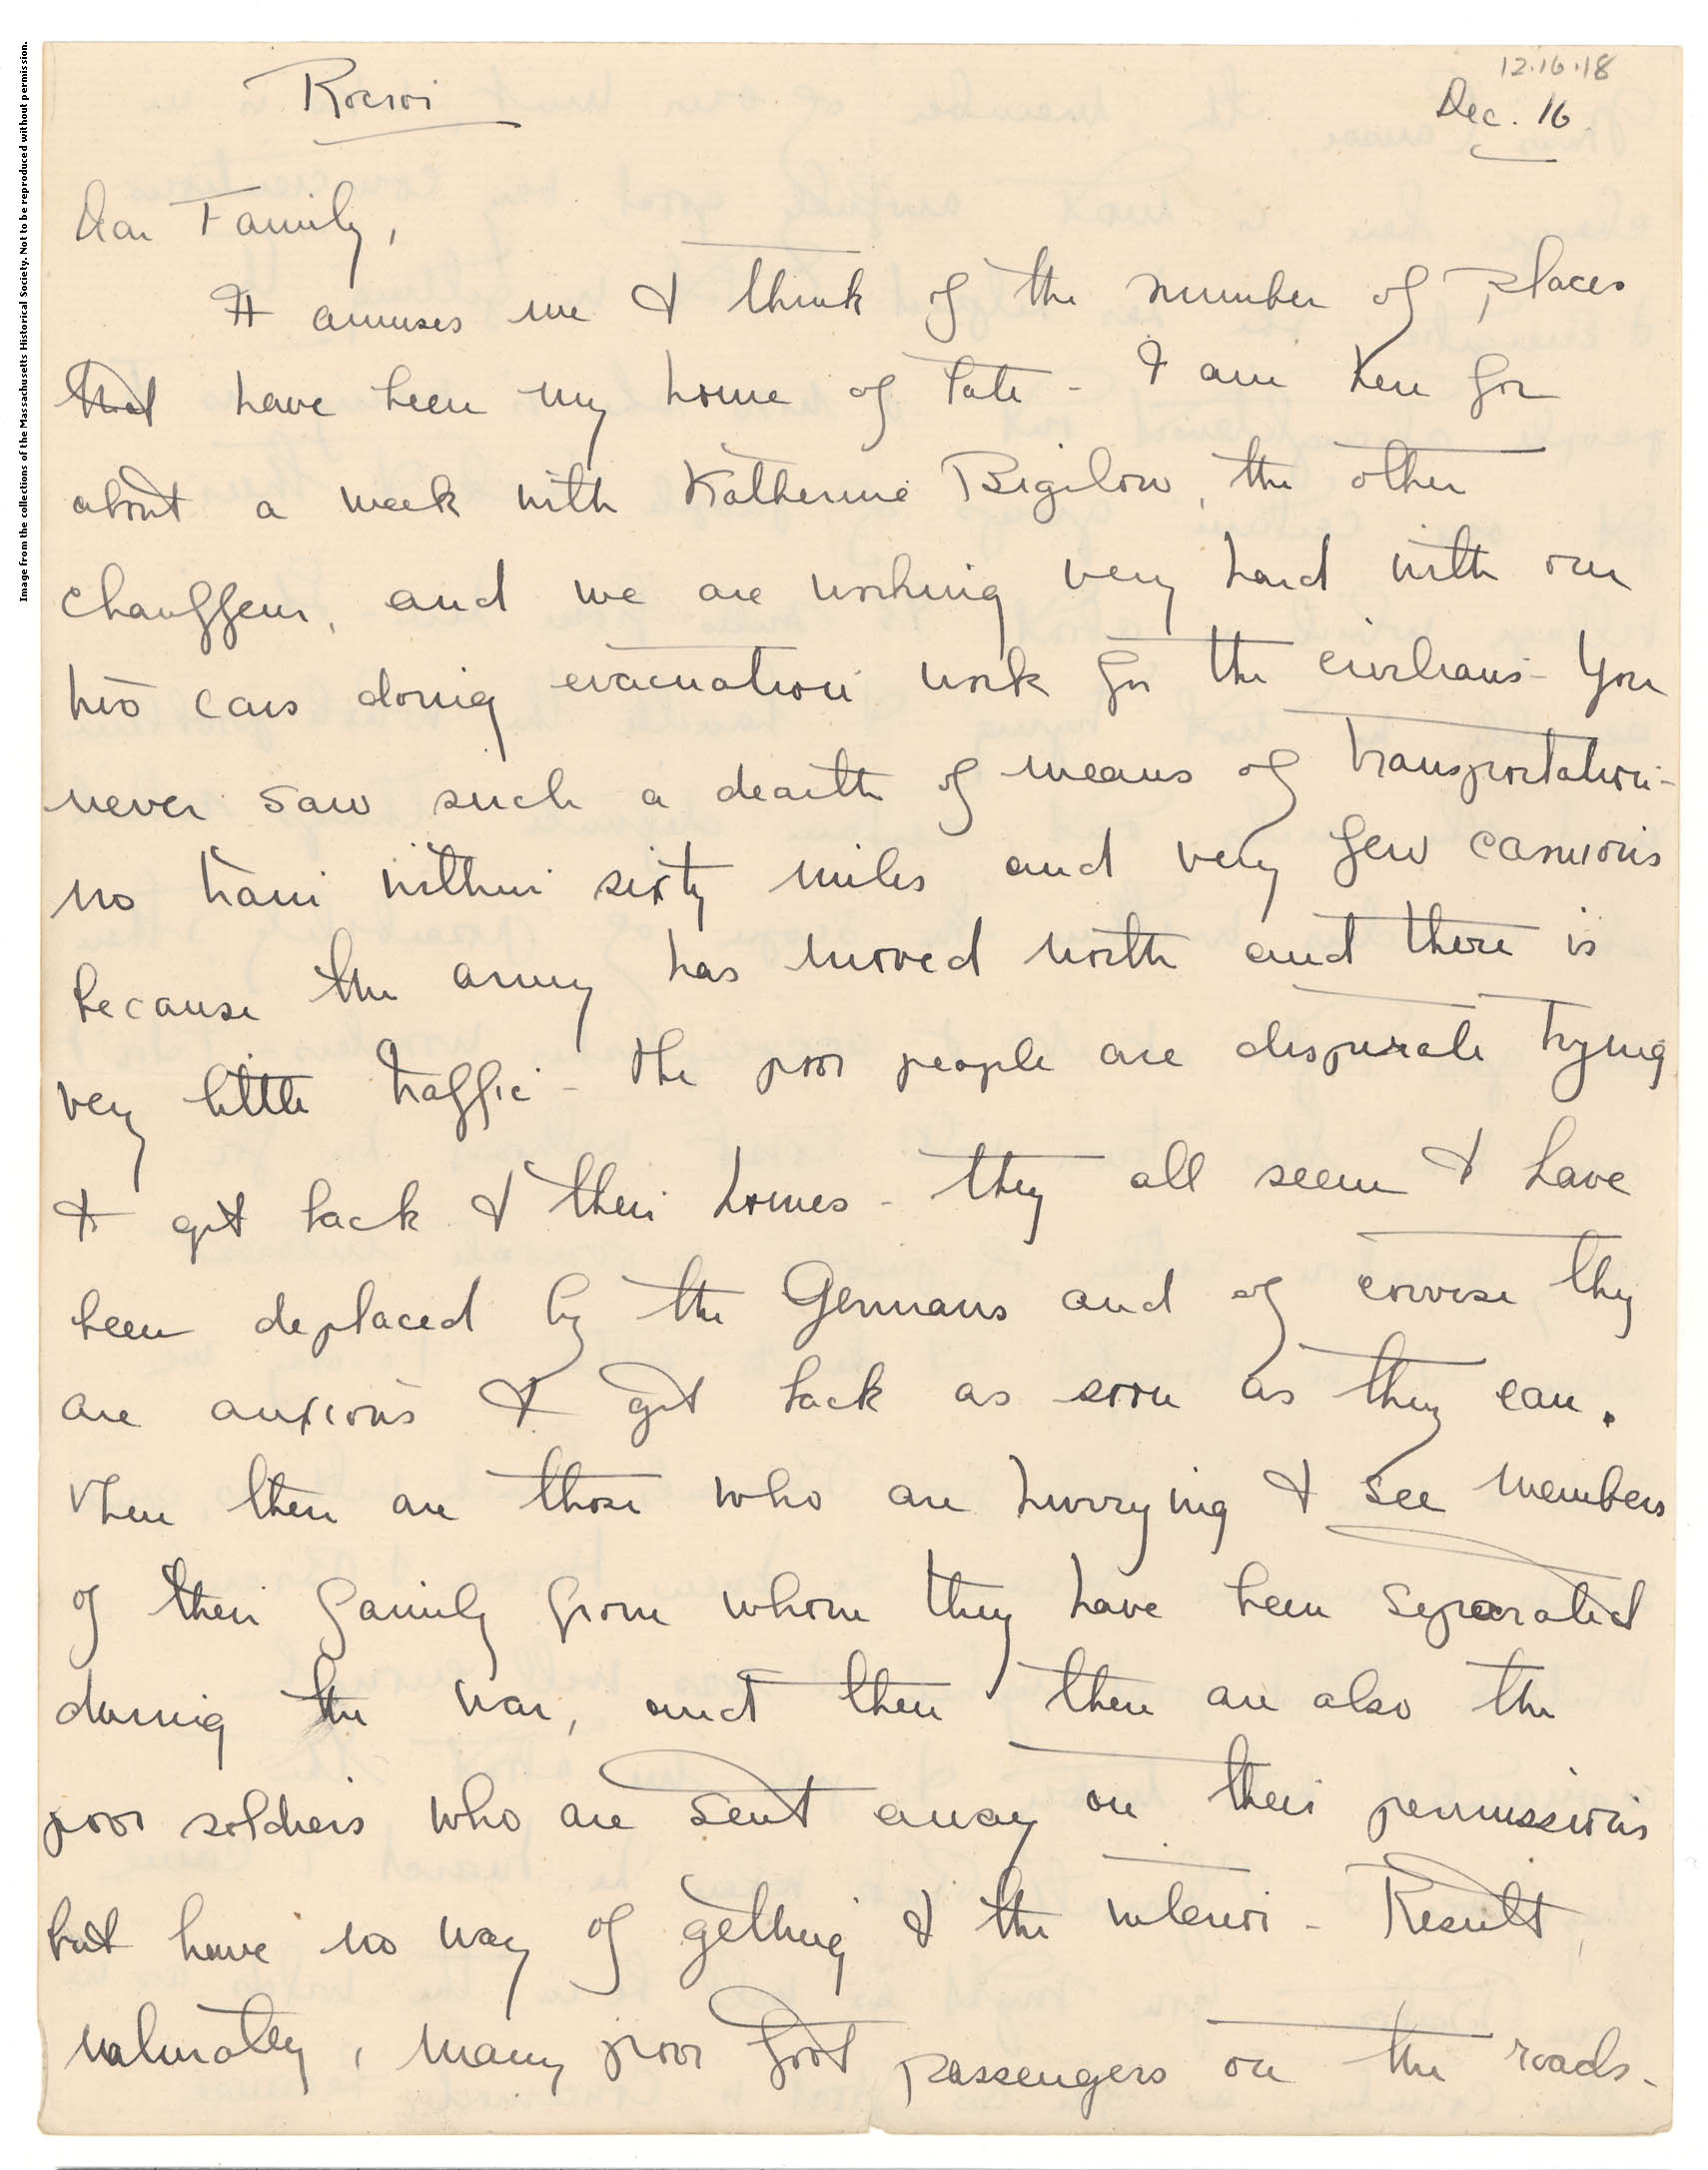 Image from the collections of the Massachusetts Historical Society. Not to be reproduced without permission.
12.16.18
Rocroi
Dec. 16
Dear Family,
It amuses me to think of the number of places
that have been my home of late - I am here for
about a week with Katherine Bigelow, the other
chauffeur, and we are working very hard with our
two cars doing evacuation work for the civilians - You
never saw such a dearth of means of transportation -
no train within sixty miles and very few camions
because the army has moved north and there is
very little traffic - The poor people are desperate trying
to get back to their homes - they all seem to have
been deplaced by the Germans and of course they
are anxious to get back as soon as they can.
Then there are those who are hurrying to see members
of their family from whom they have been separated
during the war, and then there are also the
poor soldiers who are sent away on their permissions
but have no way of getting to the interior - Result,
naturally, many poor foot passengers on the roads -